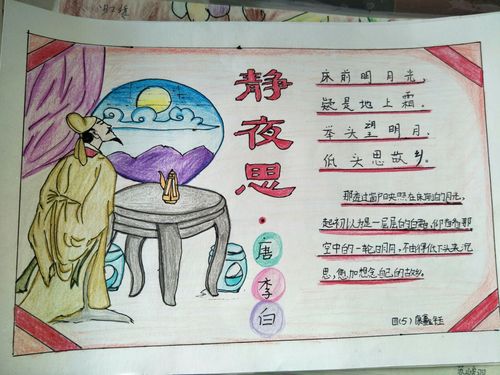 静夜思
·唐李白
床前明月光，
疑是地上霜。
举头望明月，
低头思故乡。
那透过窗户映照在床前的月光，
起初以为是一层层的白霜。仰首看那
空中的一轮明月，不由得低下头来沉
思，愈加想念自己的故乡。
四(5)